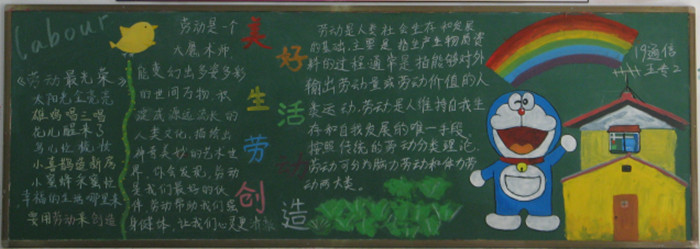 Labour
《劳动最光荣》
太阳光金亮亮
雄鸡唱三唱
花儿醒来了
鸟儿忙梳妆
小喜鹊造新房
小蜜蜂采蜜忙
幸福的生活哪里来
要用劳动来创造
劳动是一个
大魔术师
能变幻出多姿多彩
的世间万物,积
淀成源远流长的
人类文化,描绘出
神奇美妙的艺术世
界,你会发现,劳动
是我们最好的伙
伴,劳动带动我们强
身健体,让我们心灵更
美好生活劳动创造
劳动是人类社会生存和发展
的基础,主要是指生产生物质资
料的过程,通常是指能够对外
输出劳动量或劳动价值的人
类运动,劳动是人维持自我生
存和自我发展的唯一手段。
按照传统的劳动分类理论,
劳动可分为脑力劳动和体力劳
动两大类。
19通信
王专2